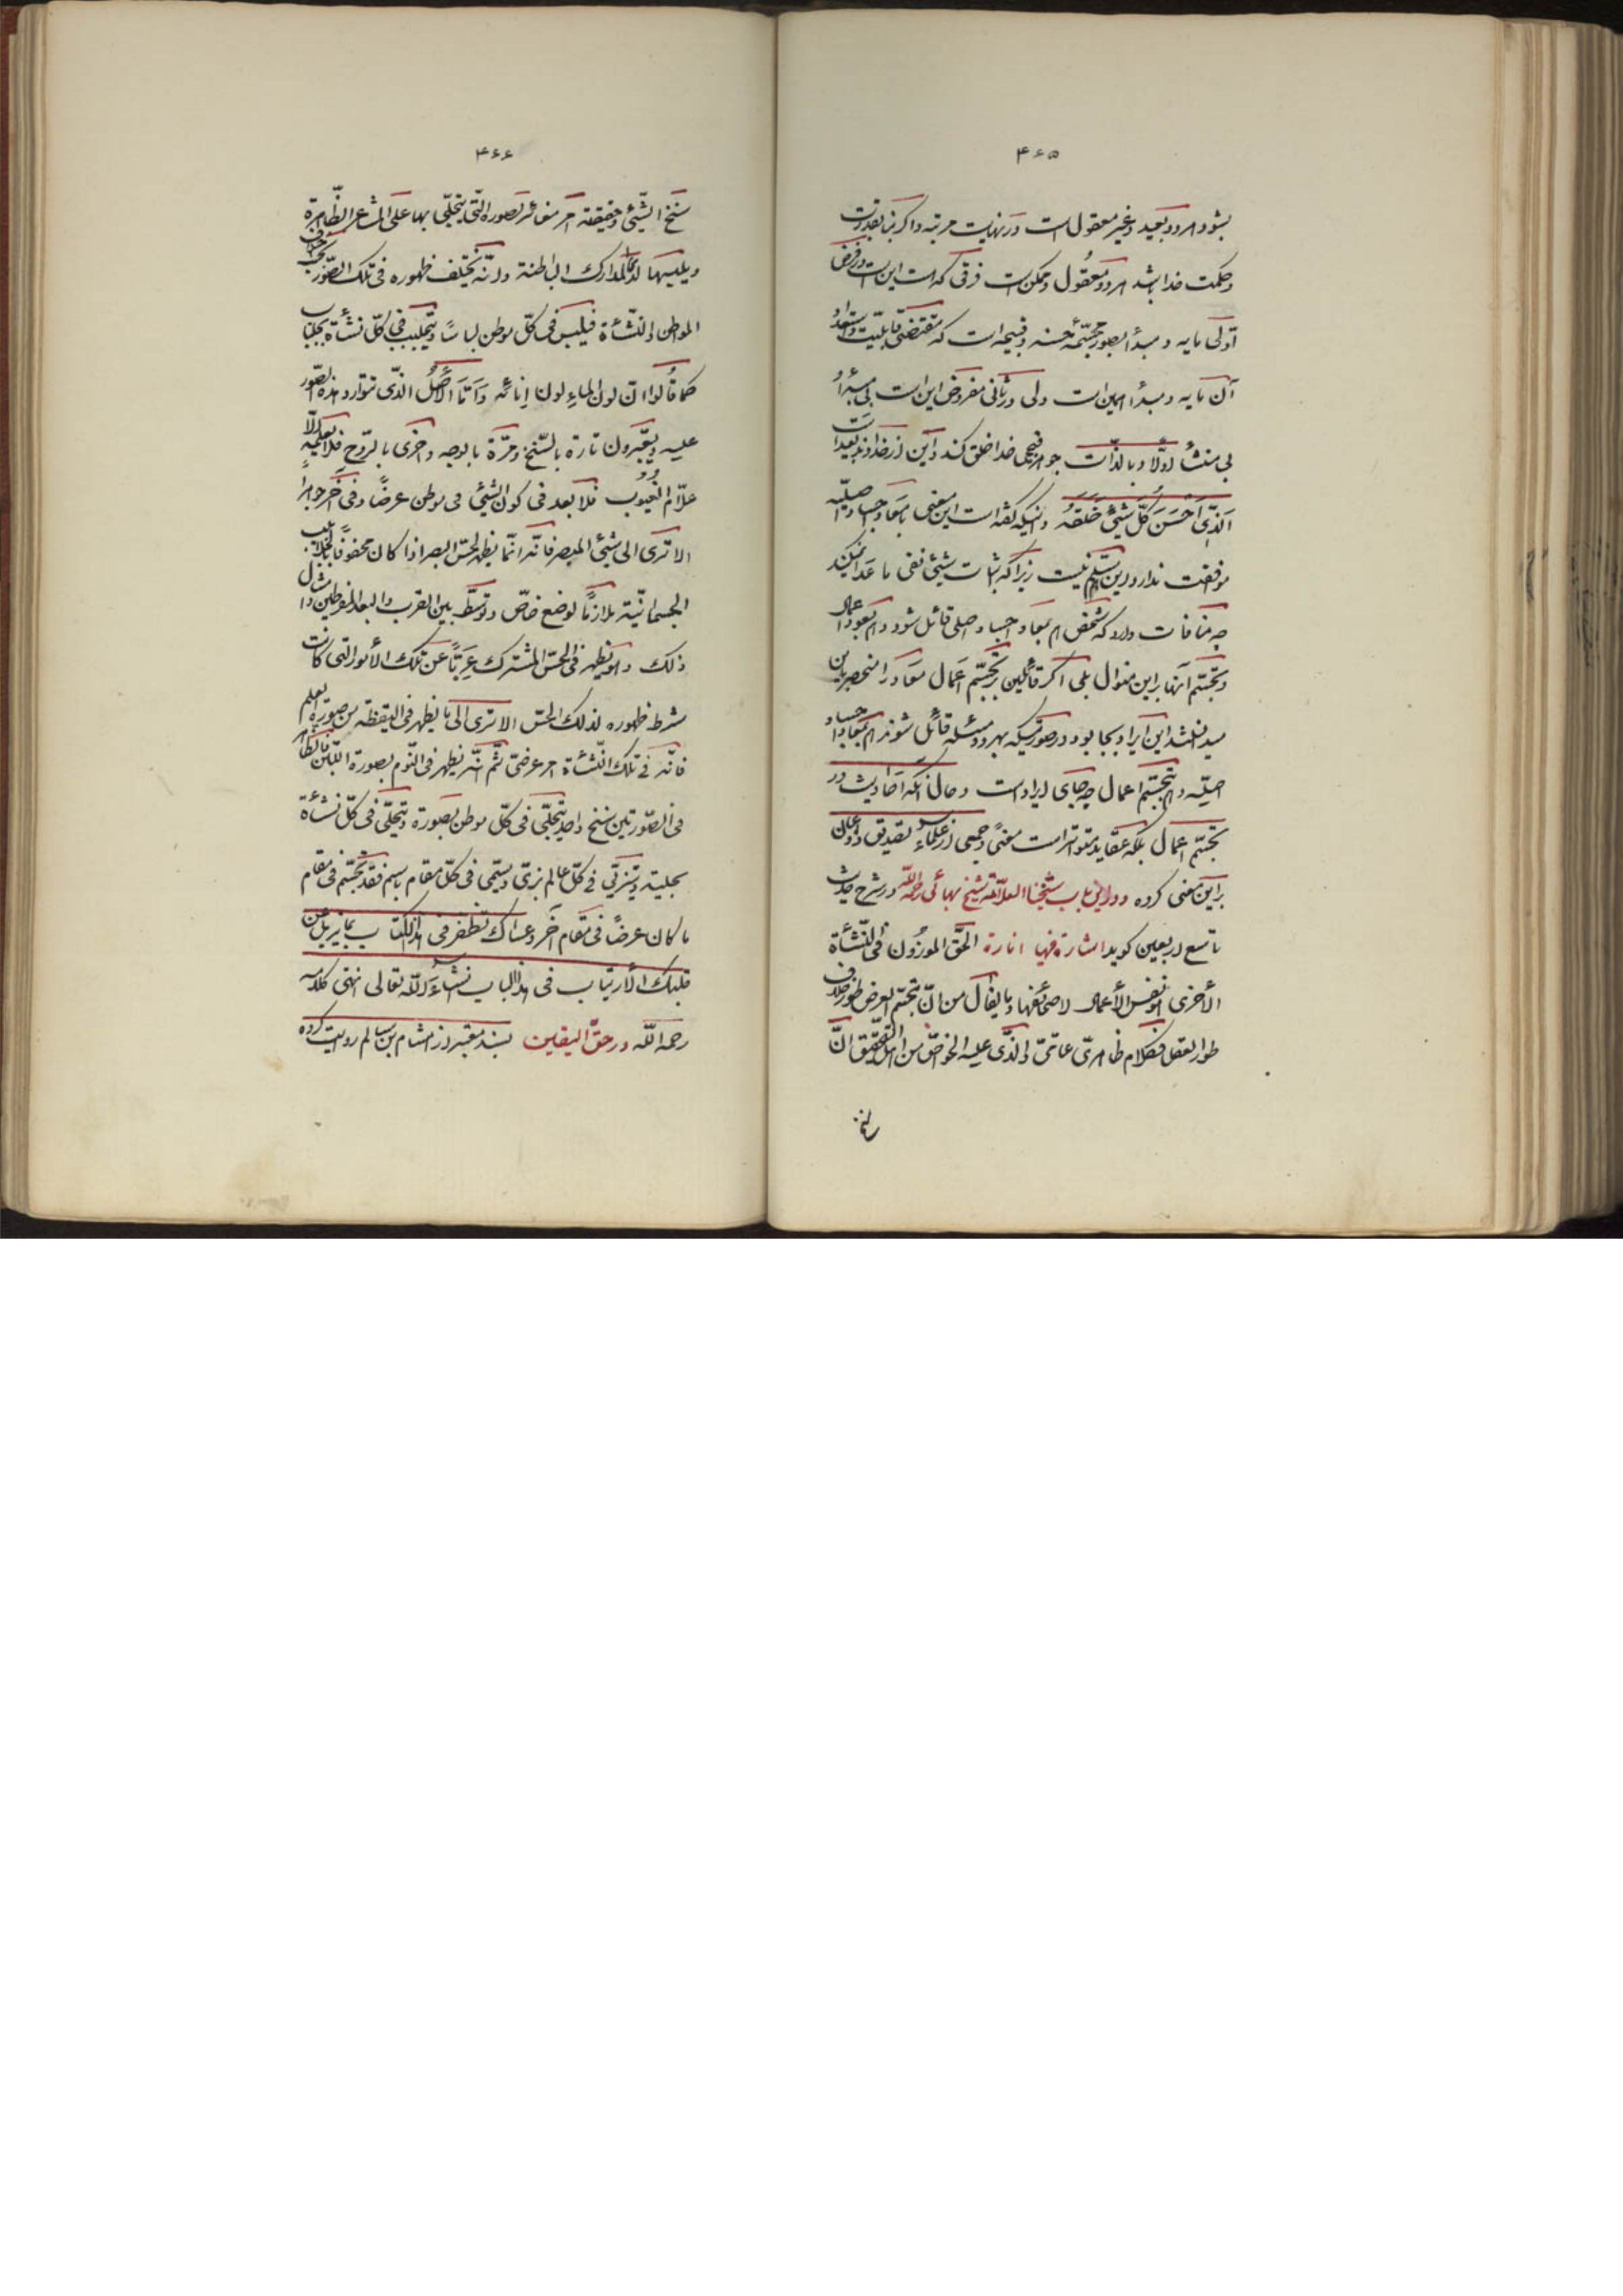 ۴۶۵
بشود هر دو بعید و غیر معقول است در نهایت مرتبه و اگر بنا بقدرت
و حکمت خدا باشد هر دو معقول و ممکن است فرقی که هست این است در فرض
اولی مایه و مبدأ بصور مجسّمه حسنه و قبیحه است که مقتضی قابلیّت و استعداد
آن مایه و مبدأ همین است ولی در ثانی مفروض این است بی مبدأ و
بی منشأ اولاً و بالذّات جوهر قبیحی خدا خلق کند و این از خداوند بعید است
اَلَّذی اَحْسَنَ کُلَّ شَیْئٍ خَلَقَهُ و اینکه گفته است این معنی با معاد اجساد اصلیّه
موافقت ندارد این مسلّم نیست زیرا که اثبات شیئی نفی ما عدا نمیکند
چه منافات دارد که شخص هم بمعاد اجساد اصلی قائل شود و هم بعود اعمال
و تجسّم آنها براین منوال بلی اگر قائلین بر تجسّم اعمال معاد را منحصر باین
میدانستند این ایراد بجا بود در صورتیکه بهر دو مسئله قائل شوند هم بمعاد اجساد
اصلیّه و هم بتجسّم اعمال چه جای ایراد است و حال آنکه احادیث در
تجسّم اعمال بلکه عقاید متواتر است معنیً و جمعی از علماء تصدیق و اذعان
براین معنی کرده و در این باب شیخنا العلّامة شیخ بهائی رحمه اللّه در شرح حدیث
تاسع اربعین کوید اشارة فیها انارة الحقّ الموزون فی النّشأة
الأخری هو نفس الأعمال لا صحائفها و ما یقال من انّ تجسّم العرض طور خلاف
طور العقل فکلام ظاهریّ عامّیّ و الّذی علیه الخواصّ من اهل التّحقیق انّ
۴۶۶
سنخ الشّیئ و حقیقته امر مغائر لصورة الّتی یتجلّی بها علی المشاعر الظّاهرة
و یلبسها لدی المدارک الباطنة و انّه یختلف ظهوره فی تلک الصّور بحسب اختلاف
المواطن و النّشأة فیلبس فی کلّ موطن لباساً و یتجلبب فی کلّ نشأة بجلباب
کما قالوا انّ لون الماء لون إنائه و اَمّا الأَصْلُ الّذی تتوارد هذه الصّور
علیه و یعبّرون تارة بالسّنخ و مرّة بالوجه و اخری بالرّوح فلا یعلمه الّا
علّام الغیوب فلا بعد فی کون الشّیئ فی موطن عرضاً و فی آخر جوهراً
الا تری الی شیئ المبصر فانّه انّما یظهر لحسّ البصر اذا کان محفوفاً بالجلابیب
الجسمانیّة ملازماً لوضع خاصّ و توسّط بین القرب و البعد المفرطین و امثال
ذلک و هو یظهر فی الحسّ المشترک عَرِیّاً عن تلک الأمور الّتی کانت
شرط ظهوره لذلک الحسّ الا تری الی ما یظهر فی الیقظة من صورة العلم
فانّه فی تلک النّشأة امر عرضیّ ثمّ انّه یظهر فی النّوم بصورة اللّبن فالظّاهر
فی الصّورتین سنخ واحد یتجلّی فی کلّ موطن بصورة و یتحلّی فی کلّ نشأة
بحلیة و یتزیّی فی کلّ عالم بزیّ و یسمّی فی کلّ مقام باسم فقد تجسّم فی مقام
ما کان عرضاً فی مقام آخر و عساک تظفر فی هذا الکتاب بما یزیل عن
قلبک الأرتیاب فی هذا الباب انشاء اللّه تعالی انتهی کلامه
رحمه اللّه و در حقّ الیقین بسند معتبر از هشام بن سالم روایت کرده